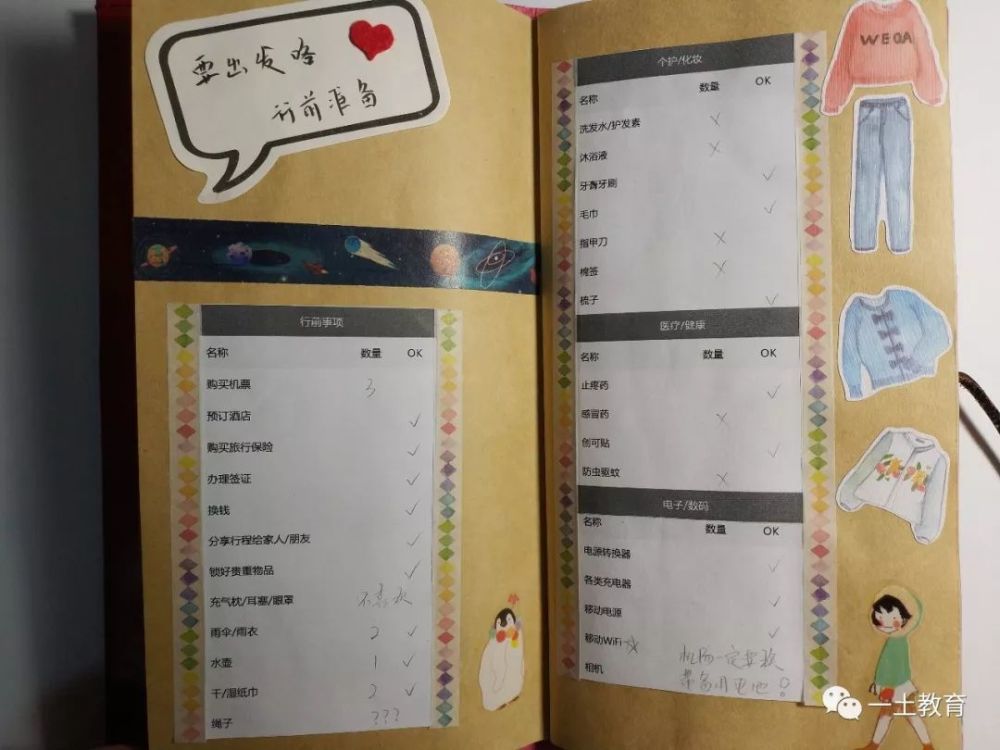 要出发咯
行前准备
行前事项
名称 数量 OK
购买机票 3
预订酒店 ✓
购买旅行保险 ✓
办理签证 ✓
换钱 ✓
分享行程给家人/朋友 ✓
锁好贵重物品 ✓
充气枕/耳塞/眼罩 不喜欢
雨伞/雨衣 2 ✓
水壶 1 ✓
干/湿纸巾 2 ✓
绳子 ???
个护/化妆
名称 数量 OK
洗发水/护发素 ×
沐浴液 ×
牙膏牙刷 ✓
毛巾 ✓
指甲刀 ×
棉签 ×
梳子 ✓
医疗/健康
名称 数量 OK
止疼药 ✓
感冒药 ×
创可贴 ✓
防虫驱蚊 ×
电子/数码
名称 数量 OK
电源转换器 ✓
各类充电器 ✓
移动电源 ✓
移动WiFi ☆
相机
一定要
带备用电池
WEOA
一土教育